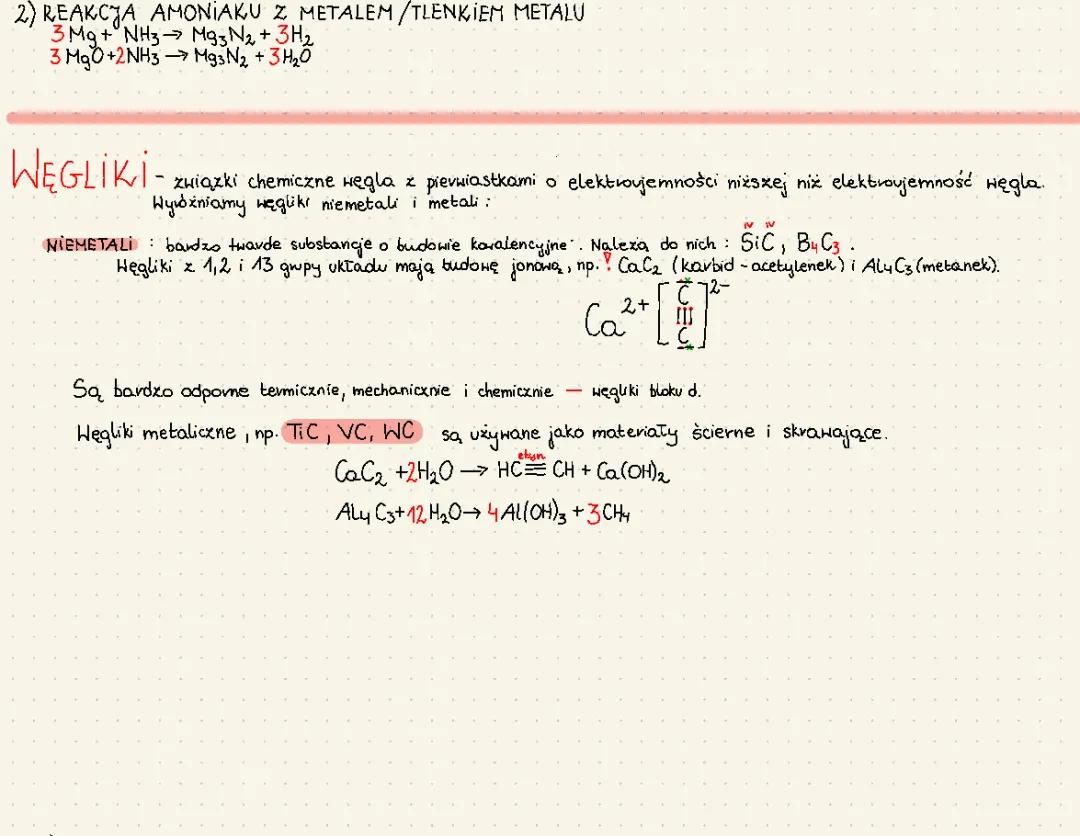 2) REAKCJA AMONIAKU Z METALEM/TLENKIEM METALU
3Mg + NH₃ → Mg₃N₂ + 3H₂
3MgO + 2NH₃ → Mg₃N₂ + 3H₂O
WĘGLIKI - związki chemiczne węgla z pierwiastkami o elektroujemności niższej niż elektroujemność węgla.
Wyróżniamy węgliki niemetali i metali:
IV IV
NIEMETALI : bardzo twarde substancje o budowie kowalencyjnej. Należą do nich: SiC, B₄C₃.
Węgliki z 1,2 i 13 grupy układu mają budowę jonową, np. ! CaC₂ (karbid - acetylenek) i Al₄C₃ (metanek).
Ca²⁺ [C≡C]²⁻
Są bardzo odporne termicznie, mechanicznie i chemicznie — węgliki bloku d.
Węgliki metaliczne, np. TiC, VC, WC są używane jako materiały ścierne i skrawające.
etyn
CaC₂ + 2H₂O → HC≡CH + Ca(OH)₂
Al₄C₃ + 12H₂O → 4Al(OH)₃ + 3CH₄